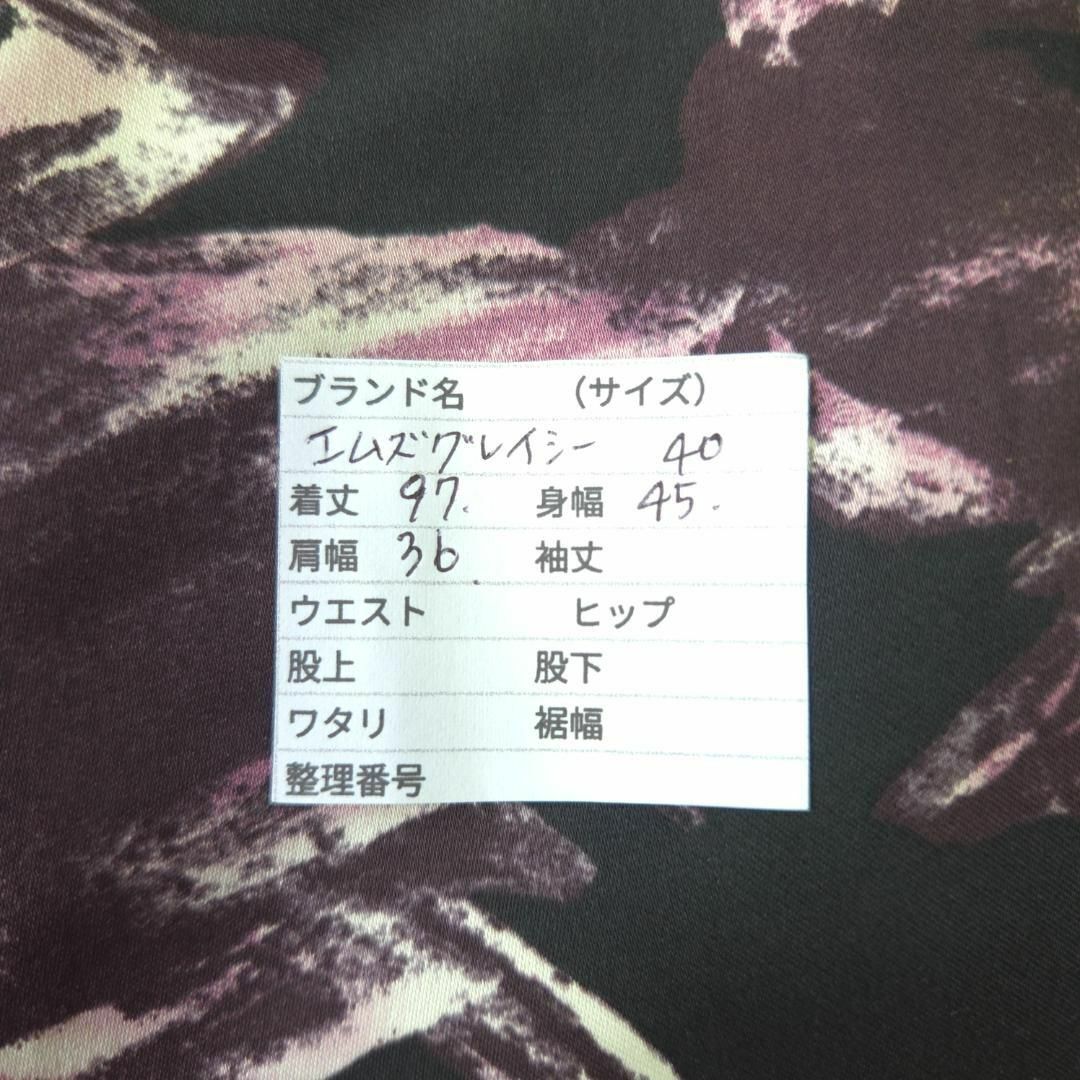 ブランド名 (サイズ)
エムズグレイシー 40
着丈 97. 身幅 45.
肩幅 36. 袖丈
ウエスト ヒップ
股上 股下
ワタリ 裾幅
整理番号